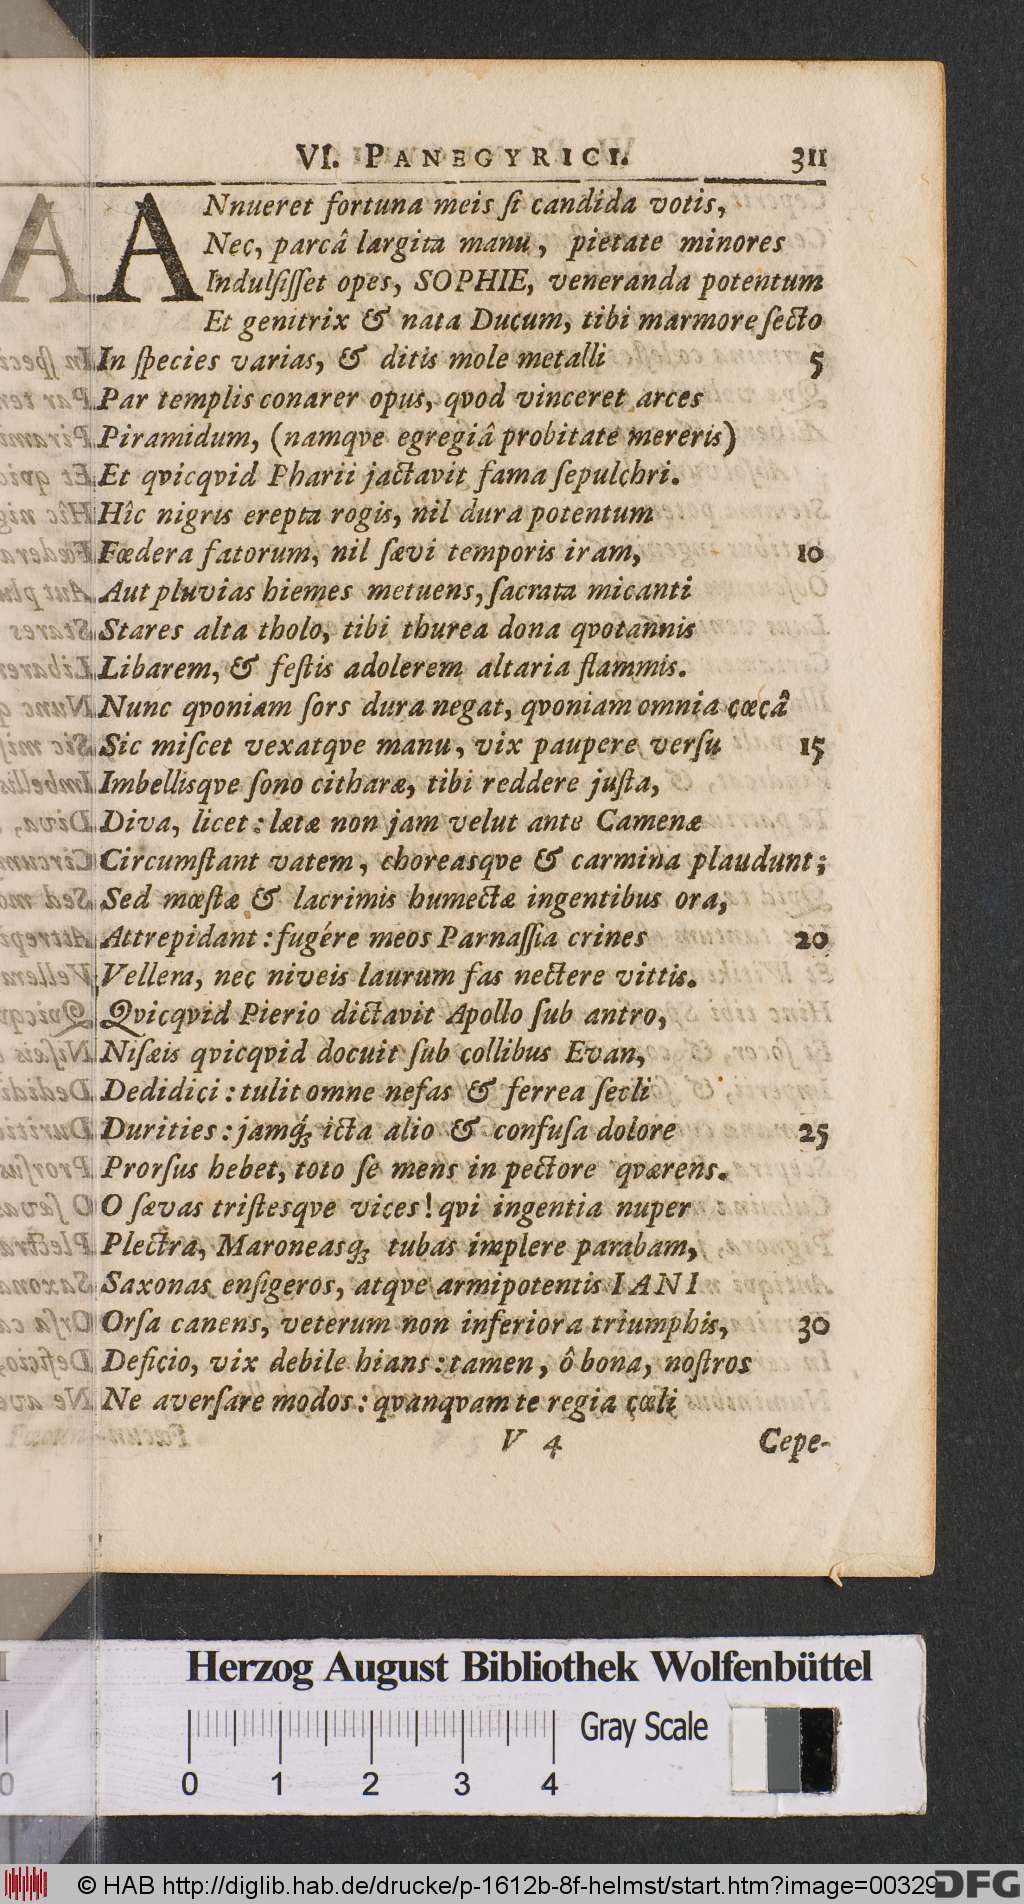 VI. PANEGYRICI. 311
ANnueret fortuna meis ſi candida votis,
Nec, parcâ largita manu, pietate minores
Indulſiſſet opes, SOPHIE, veneranda potentum
Et genitrix & nata Ducum, tibi marmore ſecto
In ſpecies varias, & ditis mole metalli 5
Par templis conarer opus, qvod vinceret arces
Piramidum, (namqve egregiâ probitate mereris)
Et qvicqvid Pharii jactavit fama ſepulchri.
Hîc nigris erepta rogis, nil dura potentum
Fœdera fatorum, nil ſævi temporis iram, 10
Aut pluvias hiemes metuens, ſacrata micanti
Stares alta tholo, tibi thurea dona qvotannis
Libarem, & feſtis adolerem altaria flammis.
Nunc qvoniam ſors dura negat, qvoniam omnia cœcâ
Sic miſcet vexatqve manu, vix paupere verſu 15
Imbellisqve ſono citharæ, tibi reddere juſta,
Diva, licet: lætæ non jam velut ante Camenæ
Circumſtant vatem, choreasqve & carmina plaudunt;
Sed mœſtæ & lacrimis humectæ ingentibus ora,
Attrepidant: fugére meos Parnaſſia crines 20
Vellera, nec niveis laurum fas nectere vittis.
Qvicqvid Pierio dictavit Apollo ſub antro,
Niſæis qvicqvid docuit ſub collibus Evan,
Dedidici: tulit omne nefas & ferrea ſecli
Durities: jamq́; icta alio & confuſa dolore 25
Prorſus hebet, toto ſe mens in pectore qværens.
O ſævas triſtesqve vices! qvi ingentia nuper
Plectra, Maroneasq; tubas implere parabam,
Saxonas enſigeros, atqve armipotentis IANI
Orſa canens, veterum non inferiora triumphis, 30
Deficio, vix debile hians: tamen, ô bona, noſtros
Ne averſare modos: qvanqvam te regia cœli
V 4 Cepe-
Herzog August Bibliothek Wolfenbüttel
Gray Scale
0 1 2 3 4
© HAB http://diglib.hab.de/drucke/p-1612b-8f-helmst/start.htm?image=00329
DFG